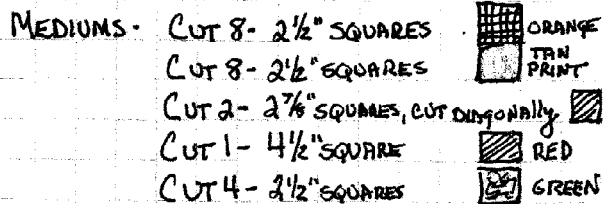 MEDIUMS. CUT 8- 2 1/2" SQUARES ORANGE
CUT 8- 2 1/2" SQUARES TAN PRINT
CUT 2- 2 7/8" SQUARES, CUT DIAGONALLY
CUT 1- 4 1/2" SQUARE RED
CUT 4- 2 1/2" SQUARES GREEN